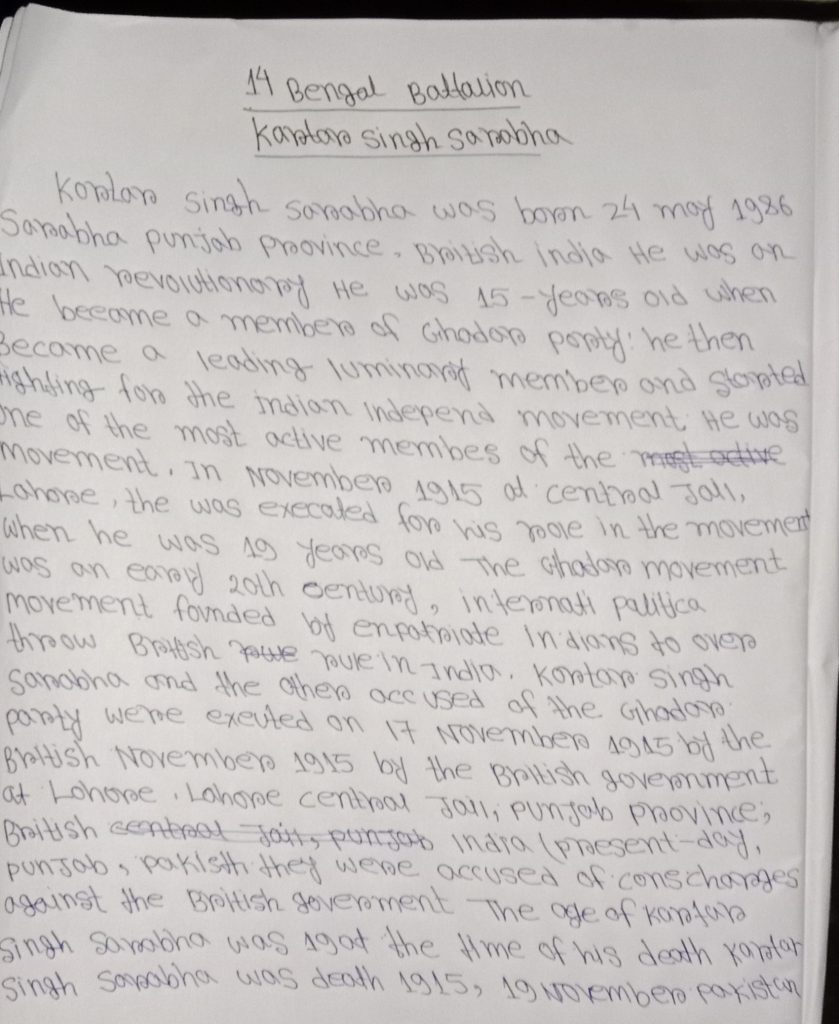 14 Bengal Battalion
Kartar Singh Sarabha
Kortar Singh Sarabha was born 24 may 1986
Sarabha punjab province, British india He was an
Indian revolutionary He was 15-years old when
He became a member of Ghadar party: he then
Became a leading luminary member and started
fighting for the indian independ movement. He was
One of the most active membes of the most active
movement. In November 1915 at central Jail,
Lahore, the was execated for his role in the movement
when he was 19 years old The Ghadar movement
was an eary 20th century, internati palitica
movement founded by enpatriate indians to over
throw British rule in India. Kortar singh
Sarabha and the other accused of the Ghadar
party were exeuted on 17 November 1915 by the
British November 1915 by the British government
at Lahore. Lahore central Jail, punjab province;
British central Jail, punjab India (present-day,
punjab, pakisth they were accused of conscharges
against the British goverment The age of Kartar
Singh Sarabha was 19at the time of his death Kartar
Singh Sarabha was death 1915, 19 November pakistan